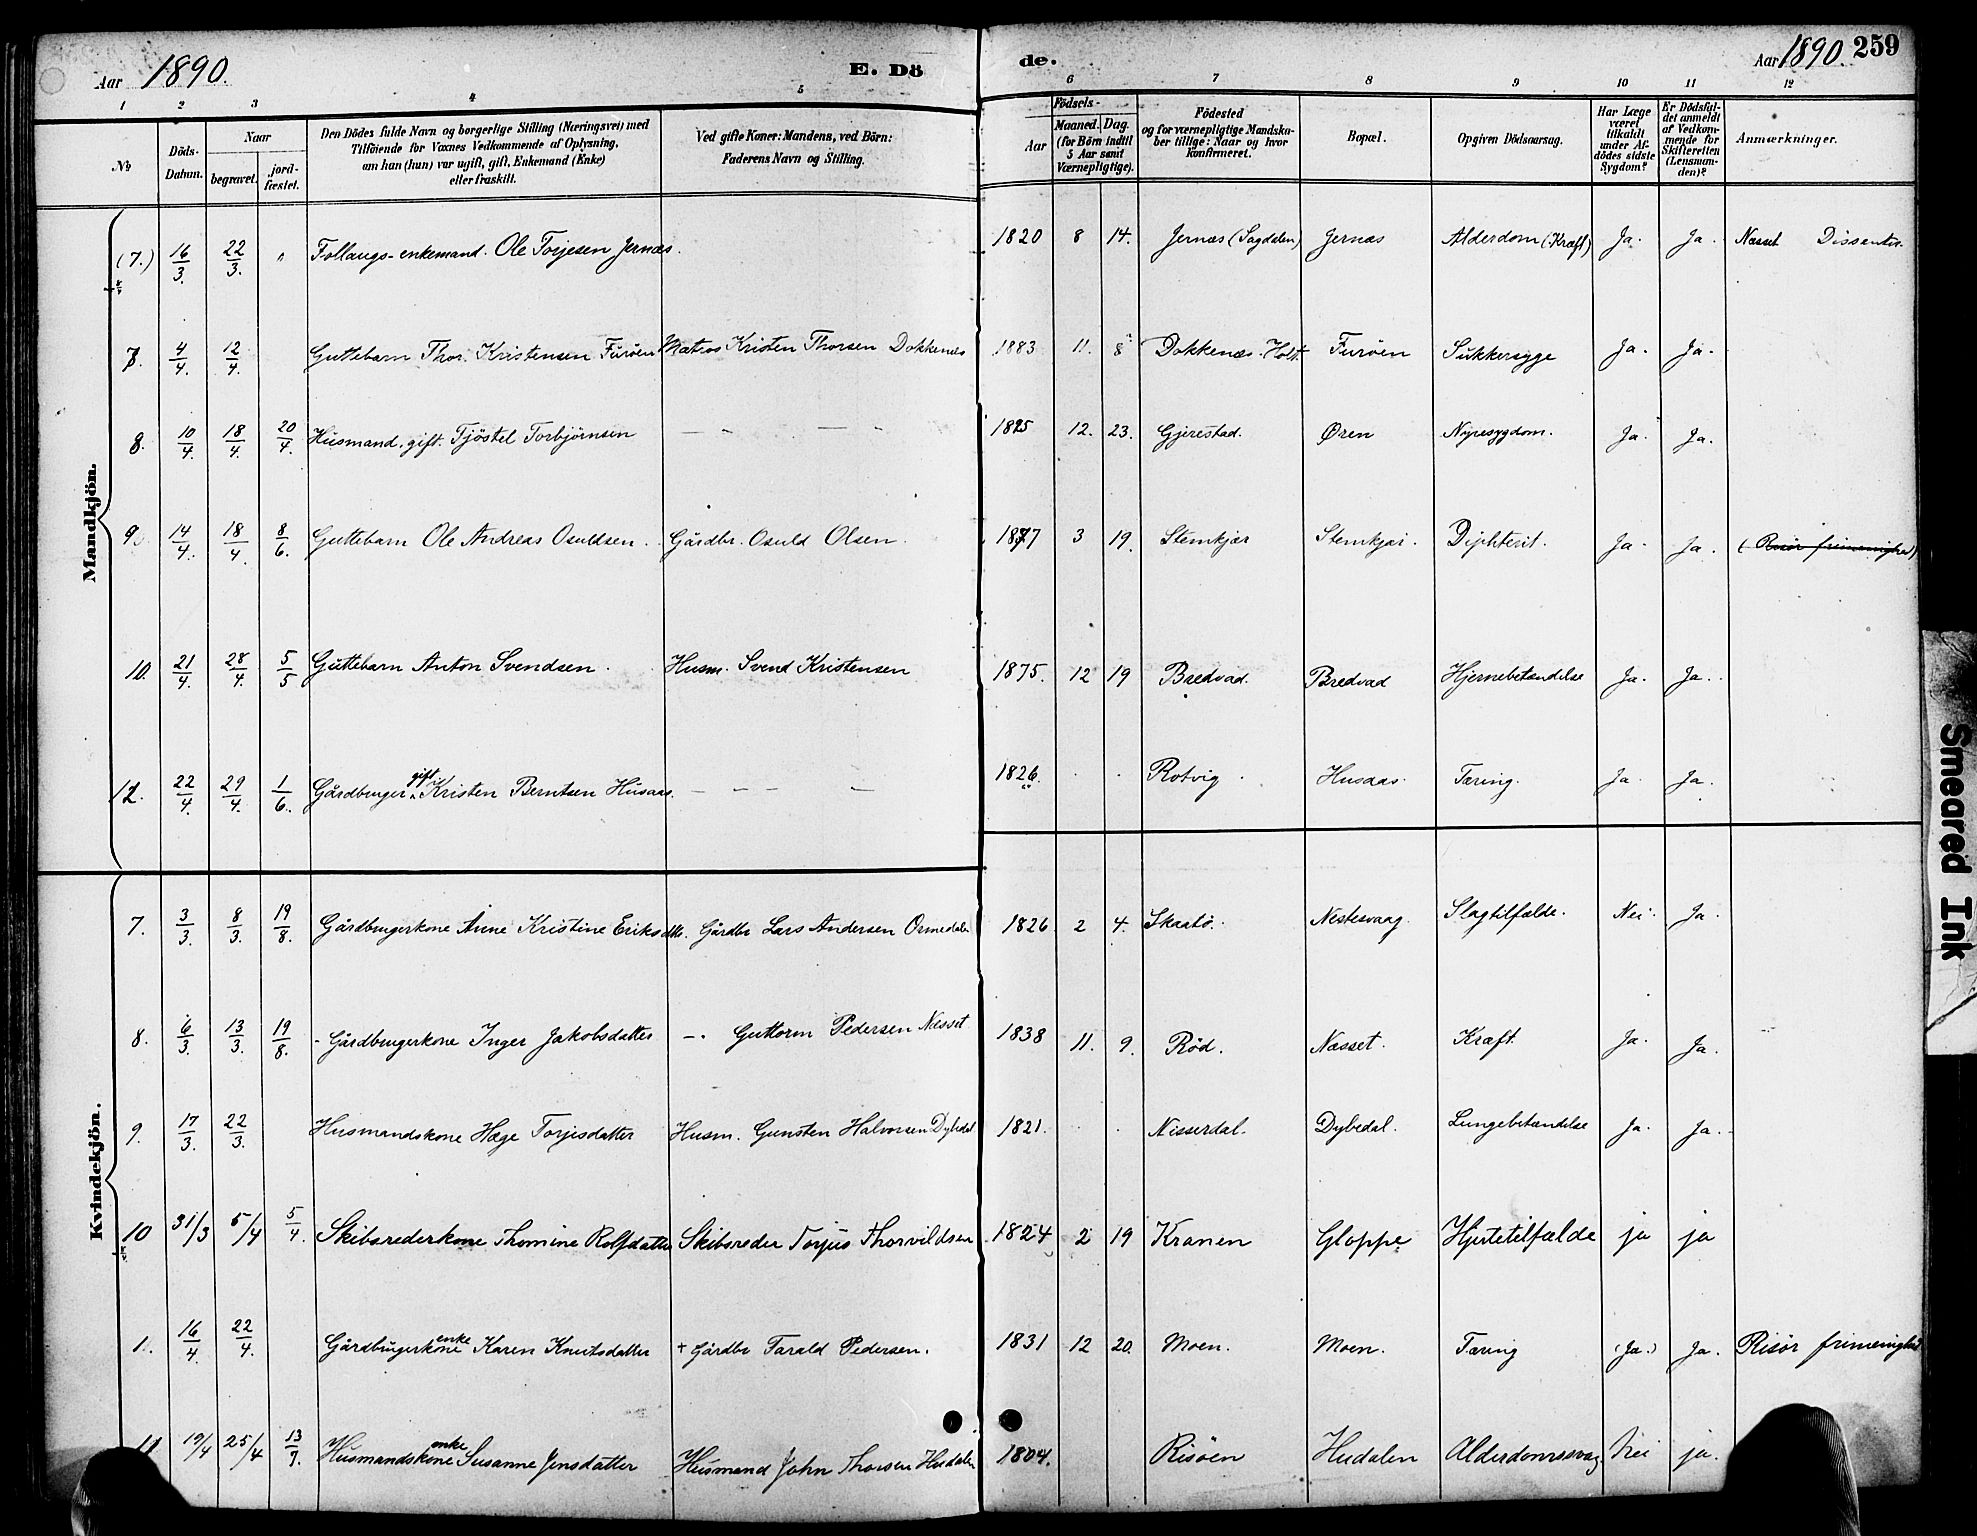 Aar 1890. E. Dö
de. Aar 1890. 259
1 2 3 4 5 6 7 8 9 10 11 12
No
Döds-Datum.
Naar
begravet.
jord-fæstet.
Den Dödes fulde Navn og borgerlige Stilling (Næringsvei) med
Tilföiende for Voxnes Vedkommende af Oplysning,
om han (hun) var ugift, gift, Enkemand (Enke)
eller fraskilt.
Ved gifte Koner: Mandens, ved Börn:
Faderens Navn og Stilling.
Födsels-
Aar
Maaned. Dag.
(for Börn indtil
5 Aar samt
Værnepligtige).
Födested
og for værnepligtige Mandska-
ber tillige: Naar og hvor
konfirmeret.
Bopæl.
Opgiven Dödsaarsag.
Har Læge
været
tilkaldt
under Af-
dödes sidste
Sygdom?
Er Dödsfal-
det anmeldt
af Vedkom-
mende for
Skifteretten
(Lensman-
den)?
Anmærkninger.
Mandkjön.
(7.) 16/3 22/3 " Follaugs-enkemand. Ole Torjesen Jernæs. 1820 8 14. Jernæs (Sagdalen) Jernæs Alderdom (Kræft) Ja. Ja. Næsset Dissenter.
7. 4/4. 12/4. Guttebarn Thor Kristensen Furöen Matros Kristen Thorsen Dokkenæs 1883 11. 8 Dokkenæs-Holt- Furöen Sukkersyge Ja. Ja.
8. 10/4. 18/4. 20/4. Husmand, gift. Tjöstel Torbjörnsen — — — — 1825 12. 23. Gjerestad. Øren Nyresygdom. Ja. Ja.
9. 14/4. 18/4. 8/6. Guttebarn Ole Andreas Osuldsen. Gårdbr. Osuld Olsen. 1877 3 19. Stemkjær Stemkjær. Diphterit. Ja. Ja. (Risør frimenighed)
10. 21/4. 28/4. 5/5 Guttebarn Anton Svendsen. Husm. Svend Kristensen 1875. 12 19 Bredvad. Bredvad Hjernebetændelse Ja. Ja.
12. 22/4. 29/4. 1/6. Gårdbruger gift Kristen Berntsen Husaas. — — — — 1826. . . Rotvig. Husaas. Tæring. Ja. Ja.
Kvindekjön.
7. 3/3. 8/3. 19/8. Gårdbrugerkone Anne Kristine Eriksdtr. Gårdbr Lars Andersen Ormedalen 1826 2 4. Skaatö. Nestesvaag. Slagtilfælde. Nei. Ja.
8. 6/3. 13/3. 19/8. - Gårdbrugerkone Inger Jakobsdatter —. Guttorm Pedersen Næsset 1838 11. 9. Rød. Næsset. Kræft. Ja. Ja.
9. 17/3. 22/3. Husmandskone Hæge Torjisdatter Husm. Gunsten Halvorsen Dybedal 1821. . . Nisserdal. Dybedal. Lungebetændelse Ja. Ja.
10 31/3 5/4 5/4. Skibsrederkone Thomine Rolfsdatter Skibsreder Torjus Thorvildsen 1824 2 19 Kranen Gloppe Hjertetilfælde ja ja
1. 16/4. 22/4. Gårdbrugerkone enke Karen Knutsdatter + Gårdbr Tarald Pedersen. 1831 12 20. Moen. Moen. Tæring (Ja.) Ja. Risør frimenighed
11 19/4 25/4 13/7. Husmandskone enke Susanne Jensdatter Husmand John Thorsen Hudalen 1804. Risöen Hudalen Alderdomssvag. Nei ja.
Smeared Ink